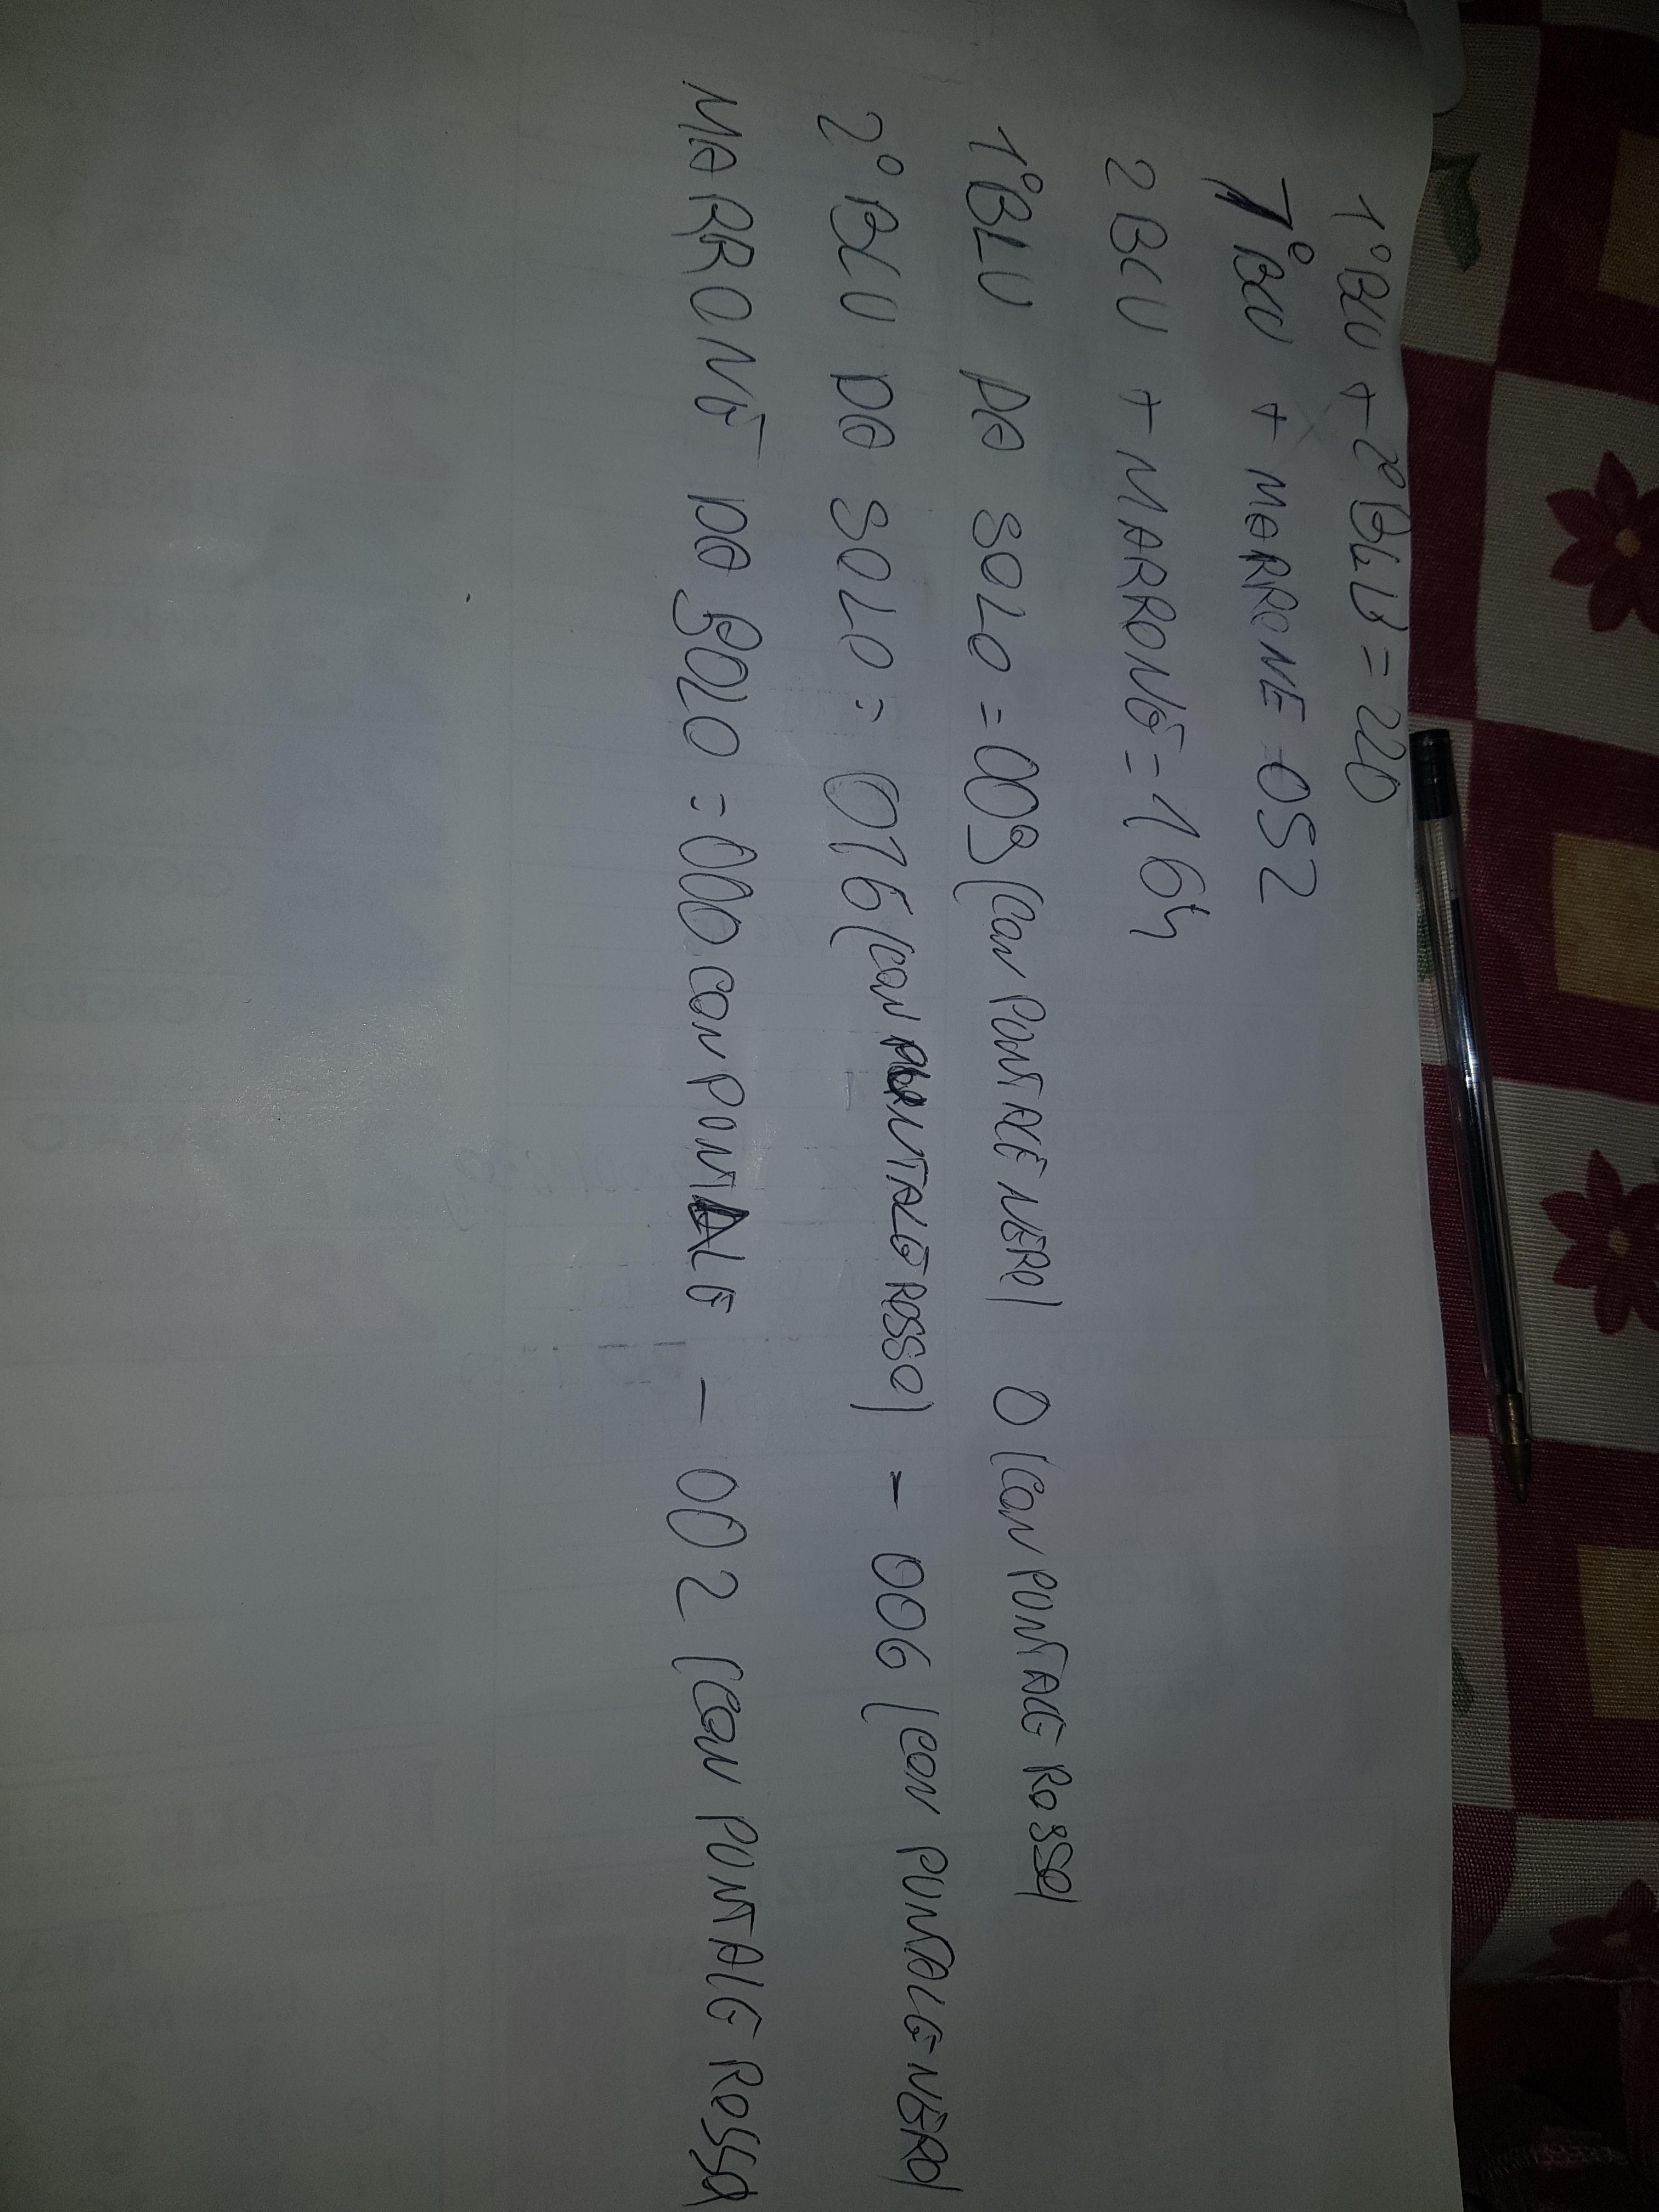 1° BLU + 2° BLU = 220
1° BLU + MARRONE = 052
2 BLU + MARRONE = 164
1° BLU DA SOLO = 009 (CON PUNTALE NERO) 0 (CON PUNTALE ROSSO)
2° BLU DA SOLO = 016 (CON PUNTALE ROSSO) - 006 (CON PUNTALE NERO)
MARRONE DA SOLO = 000 CON PUNTALE - 002 (CON PUNTALE ROSSO)
LUNEDI
MARTED
MERCOL
GIOVEDI
VENERDI
SABATO